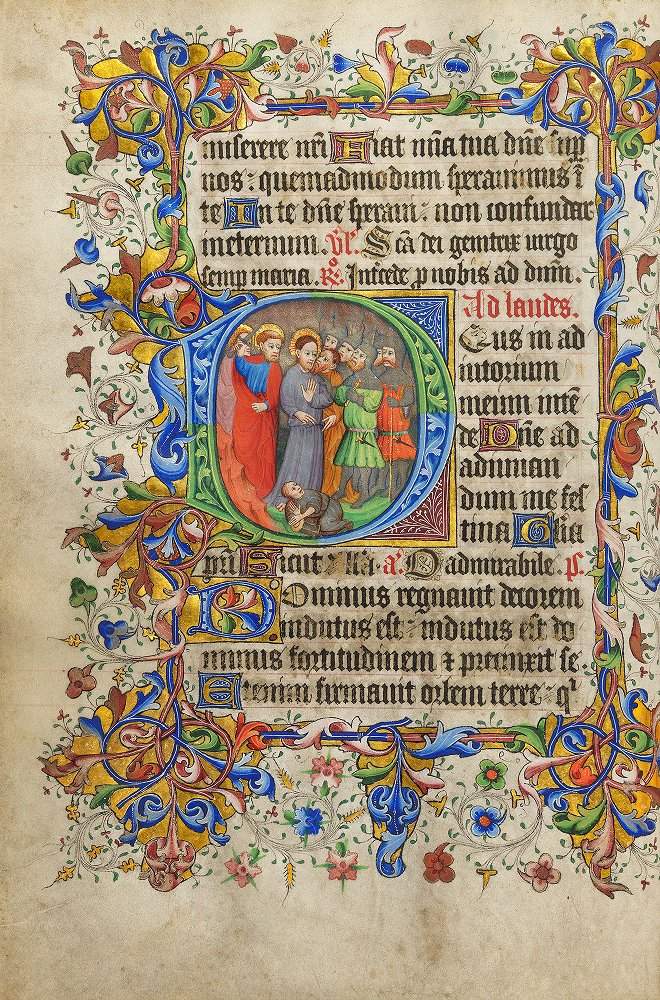 miserere nr̄i Fiat mīa tua dn̄e sup̄
nos : quemadmodum sperauimus ī
te In te dn̄e speraui : non confundar
ineternum. Vr̄. Sc̄a dei genitrix uirgo
semp maria. Rō. Intercede p nobis ad dn̄m.
Ad laudes.
Deus in ad
iutorium
meum intē
de Dn̄e ad
adiuuan
dum me fes
tina Glīa
pri Sicut Alla. aͣ. O admirabile. ps.
Dominus regnauit decorem
indutus est : indutus est do
minus fortitudinem ⁊ precinxit se
Etenim firmauit orbem terre : qͥ